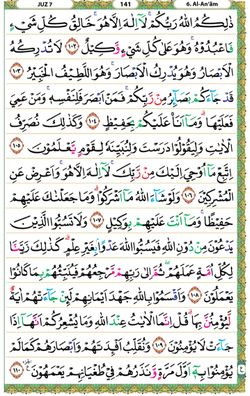 JUZ 7 141 6. Al-An'ām
ذَٰلِكُمُ اللَّهُ رَبُّكُمْ لَا إِلَٰهَ إِلَّا هُوَ خَالِقُ كُلِّ شَيْءٍ
فَاعْبُدُوهُ وَهُوَ عَلَىٰ كُلِّ شَيْءٍ وَكِيلٌ ١٠٢ لَا تُدْرِكُهُ
الْأَبْصَارُ وَهُوَ يُدْرِكُ الْأَبْصَارَ وَهُوَ اللَّطِيفُ الْخَبِيرُ ١٠٣
قَدْ جَاءَكُمْ بَصَائِرُ مِنْ رَبِّكُمْ فَمَنْ أَبْصَرَ فَلِنَفْسِهِ وَمَنْ عَمِيَ
فَعَلَيْهَا وَمَا أَنَا عَلَيْكُمْ بِحَفِيظٍ ١٠٤ وَكَذَٰلِكَ نُصَرِّفُ
الْآيَاتِ وَلِيَقُولُوا دَرَسْتَ وَلِنُبَيِّنَهُ لِقَوْمٍ يَعْلَمُونَ ١٠٥
اتَّبِعْ مَا أُوحِيَ إِلَيْكَ مِنْ رَبِّكَ لَا إِلَٰهَ إِلَّا هُوَ وَأَعْرِضْ عَنِ
الْمُشْرِكِينَ ١٠٦ وَلَوْ شَاءَ اللَّهُ مَا أَشْرَكُوا وَمَا جَعَلْنَاكَ عَلَيْهِمْ
حَفِيظًا وَمَا أَنْتَ عَلَيْهِمْ بِوَكِيلٍ ١٠٧ وَلَا تَسُبُّوا الَّذِينَ
يَدْعُونَ مِنْ دُونِ اللَّهِ فَيَسُبُّوا اللَّهَ عَدْوًا بِغَيْرِ عِلْمٍ كَذَٰلِكَ زَيَّنَّا
لِكُلِّ أُمَّةٍ عَمَلَهُمْ ثُمَّ إِلَىٰ رَبِّهِمْ مَرْجِعُهُمْ فَيُنَبِّئُهُمْ بِمَا كَانُوا
يَعْمَلُونَ ١٠٨ وَأَقْسَمُوا بِاللَّهِ جَهْدَ أَيْمَانِهِمْ لَئِنْ جَاءَتْهُمْ آيَةٌ
لَيُؤْمِنُنَّ بِهَا قُلْ إِنَّمَا الْآيَاتُ عِنْدَ اللَّهِ وَمَا يُشْعِرُكُمْ أَنَّهَا إِذَا
جَاءَتْ لَا يُؤْمِنُونَ ١٠٩ وَنُقَلِّبُ أَفْئِدَتَهُمْ وَأَبْصَارَهُمْ كَمَا لَمْ
يُؤْمِنُوا بِهِ أَوَّلَ مَرَّةٍ وَنَذَرُهُمْ فِي طُغْيَانِهِمْ يَعْمَهُونَ ١١٠